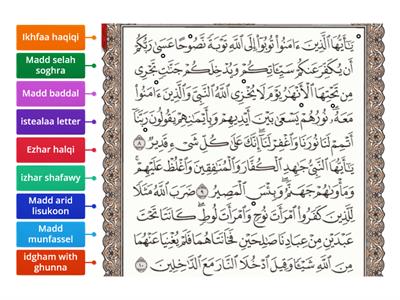 Ikhfaa haqiqi
Madd selah
soghra
Madd baddal
istealaa letter
Ezhar halqi
izhar shafawy
Madd arid
lisukoon
Madd
munfassel
idgham with
ghunna
يَٰٓأَيُّهَا ٱلَّذِينَ ءَامَنُواْ تُوبُوٓاْ إِلَى ٱللَّهِ تَوْبَةً نَّصُوحًا عَسَىٰ رَبُّكُمْ
أَن يُكَفِّرَ عَنكُمْ سَيِّـَٔاتِكُمْ وَيُدْخِلَكُمْ جَنَّٰتٍ تَجْرِى
مِن تَحْتِهَا ٱلْأَنْهَٰرُ يَوْمَ لَا يُخْزِى ٱللَّهُ ٱلنَّبِىَّ وَٱلَّذِينَ ءَامَنُواْ
مَعَهُۥ نُورُهُمْ يَسْعَىٰ بَيْنَ أَيْدِيهِمْ وَبِأَيْمَٰنِهِمْ يَقُولُونَ رَبَّنَآ
أَتْمِمْ لَنَا نُورَنَا وَٱغْفِرْ لَنَآ إِنَّكَ عَلَىٰ كُلِّ شَىْءٍ قَدِيرٌ ٨
يَٰٓأَيُّهَا ٱلنَّبِىُّ جَٰهِدِ ٱلْكُفَّارَ وَٱلْمُنَٰفِقِينَ وَٱغْلُظْ عَلَيْهِمْ
وَمَأْوَىٰهُمْ جَهَنَّمُ وَبِئْسَ ٱلْمَصِيرُ ٩ ضَرَبَ ٱللَّهُ مَثَلًا
لِّلَّذِينَ كَفَرُواْ ٱمْرَأَتَ نُوحٍ وَٱمْرَأَتَ لُوطٍ كَانَتَا تَحْتَ
عَبْدَيْنِ مِنْ عِبَادِنَا صَٰلِحَيْنِ فَخَانَتَاهُمَا فَلَمْ يُغْنِيَا عَنْهُمَا
مِنَ ٱللَّهِ شَيْـًٔا وَقِيلَ ٱدْخُلَا ٱلنَّارَ مَعَ ٱلدَّٰخِلِينَ ١٠